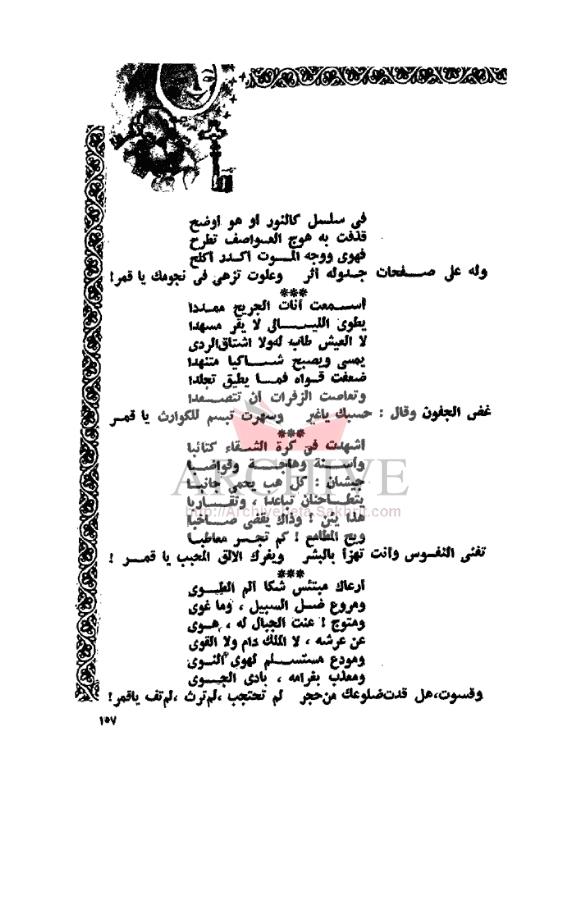 فى سلسل كالنور او هو اوضح
قذفت به هوج العواصف تطرح
فهوى ووجه الموت أكدد أكلح
وله على صفحات جدوله أثر وعلوت تزهى فى نجومك يا قمر!
***
أسمعت أنات الجريح ممددا
يطوى الليالى لا يقر مسهدا
لا العيش طاب له ولا اشتاق الردى
يمسى ويصبح شاكيا متنهدا
ضعفت قواه فما يطيق تجلدا
وتعاصت الزفرات أن تتصعدا
غض الجفون وقال : حسبك ياغير وسهرت تبسم للكوارث يا قمر
***
أشهدت فى كرة الشقاء كتائبا
وأسنة وهاجة وقواضبا
جيشان : كل هب يحمى جانبا
يتطاحنان تباعدا ، وتقاربا
هذا يئن ! وذاك يقضى صاخبا
ويح المطامع ! كم تجسر معاطبا
تفنى النفوس وأنت تهزأ بالبشر ويغرك الألق المحبب يا قمر !
***
أرعاك مبتئس شكا ألم الطوى
ومروع ضل السبيل ، وما غوى
ومتوج ! عنت الجبال له ، هوى
عن عرشه ، لا الملك دام ولا القوى
ومودع مستسلم لهوى النوى
ومعذب بغرامه ، بادى الجوى
وقسوت،هل قدت ضلوعك من حجر لم تحتجب ،لم ترث ،لم تف ياقمر!
١٥٧
ARCHIVE
http://Archivebeta.Sakhrit.com